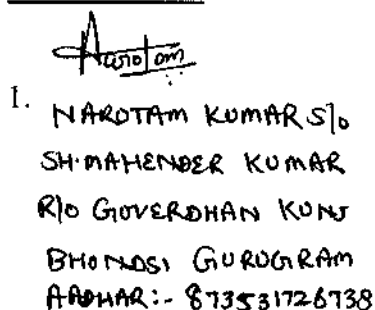 Narotam
1. NAROTAM KUMAR S/o
SH. MAHENDER KUMAR
R/o GOVERDHAN KUNJ
BHONDSI GURUGRAM
AADHAR:- 873531726738